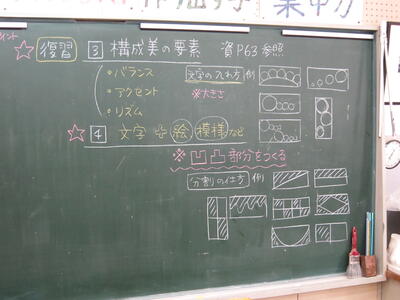 集中力
ポイント
☆ 復習 3 構成美の要素 資P63参照
・バランス
・アクセント
・リズム
文字の入れ方 例
※大きさ
☆ 4 文字 + 絵 模様 など
※ 凹凸部分をつくる
分割の仕方 例